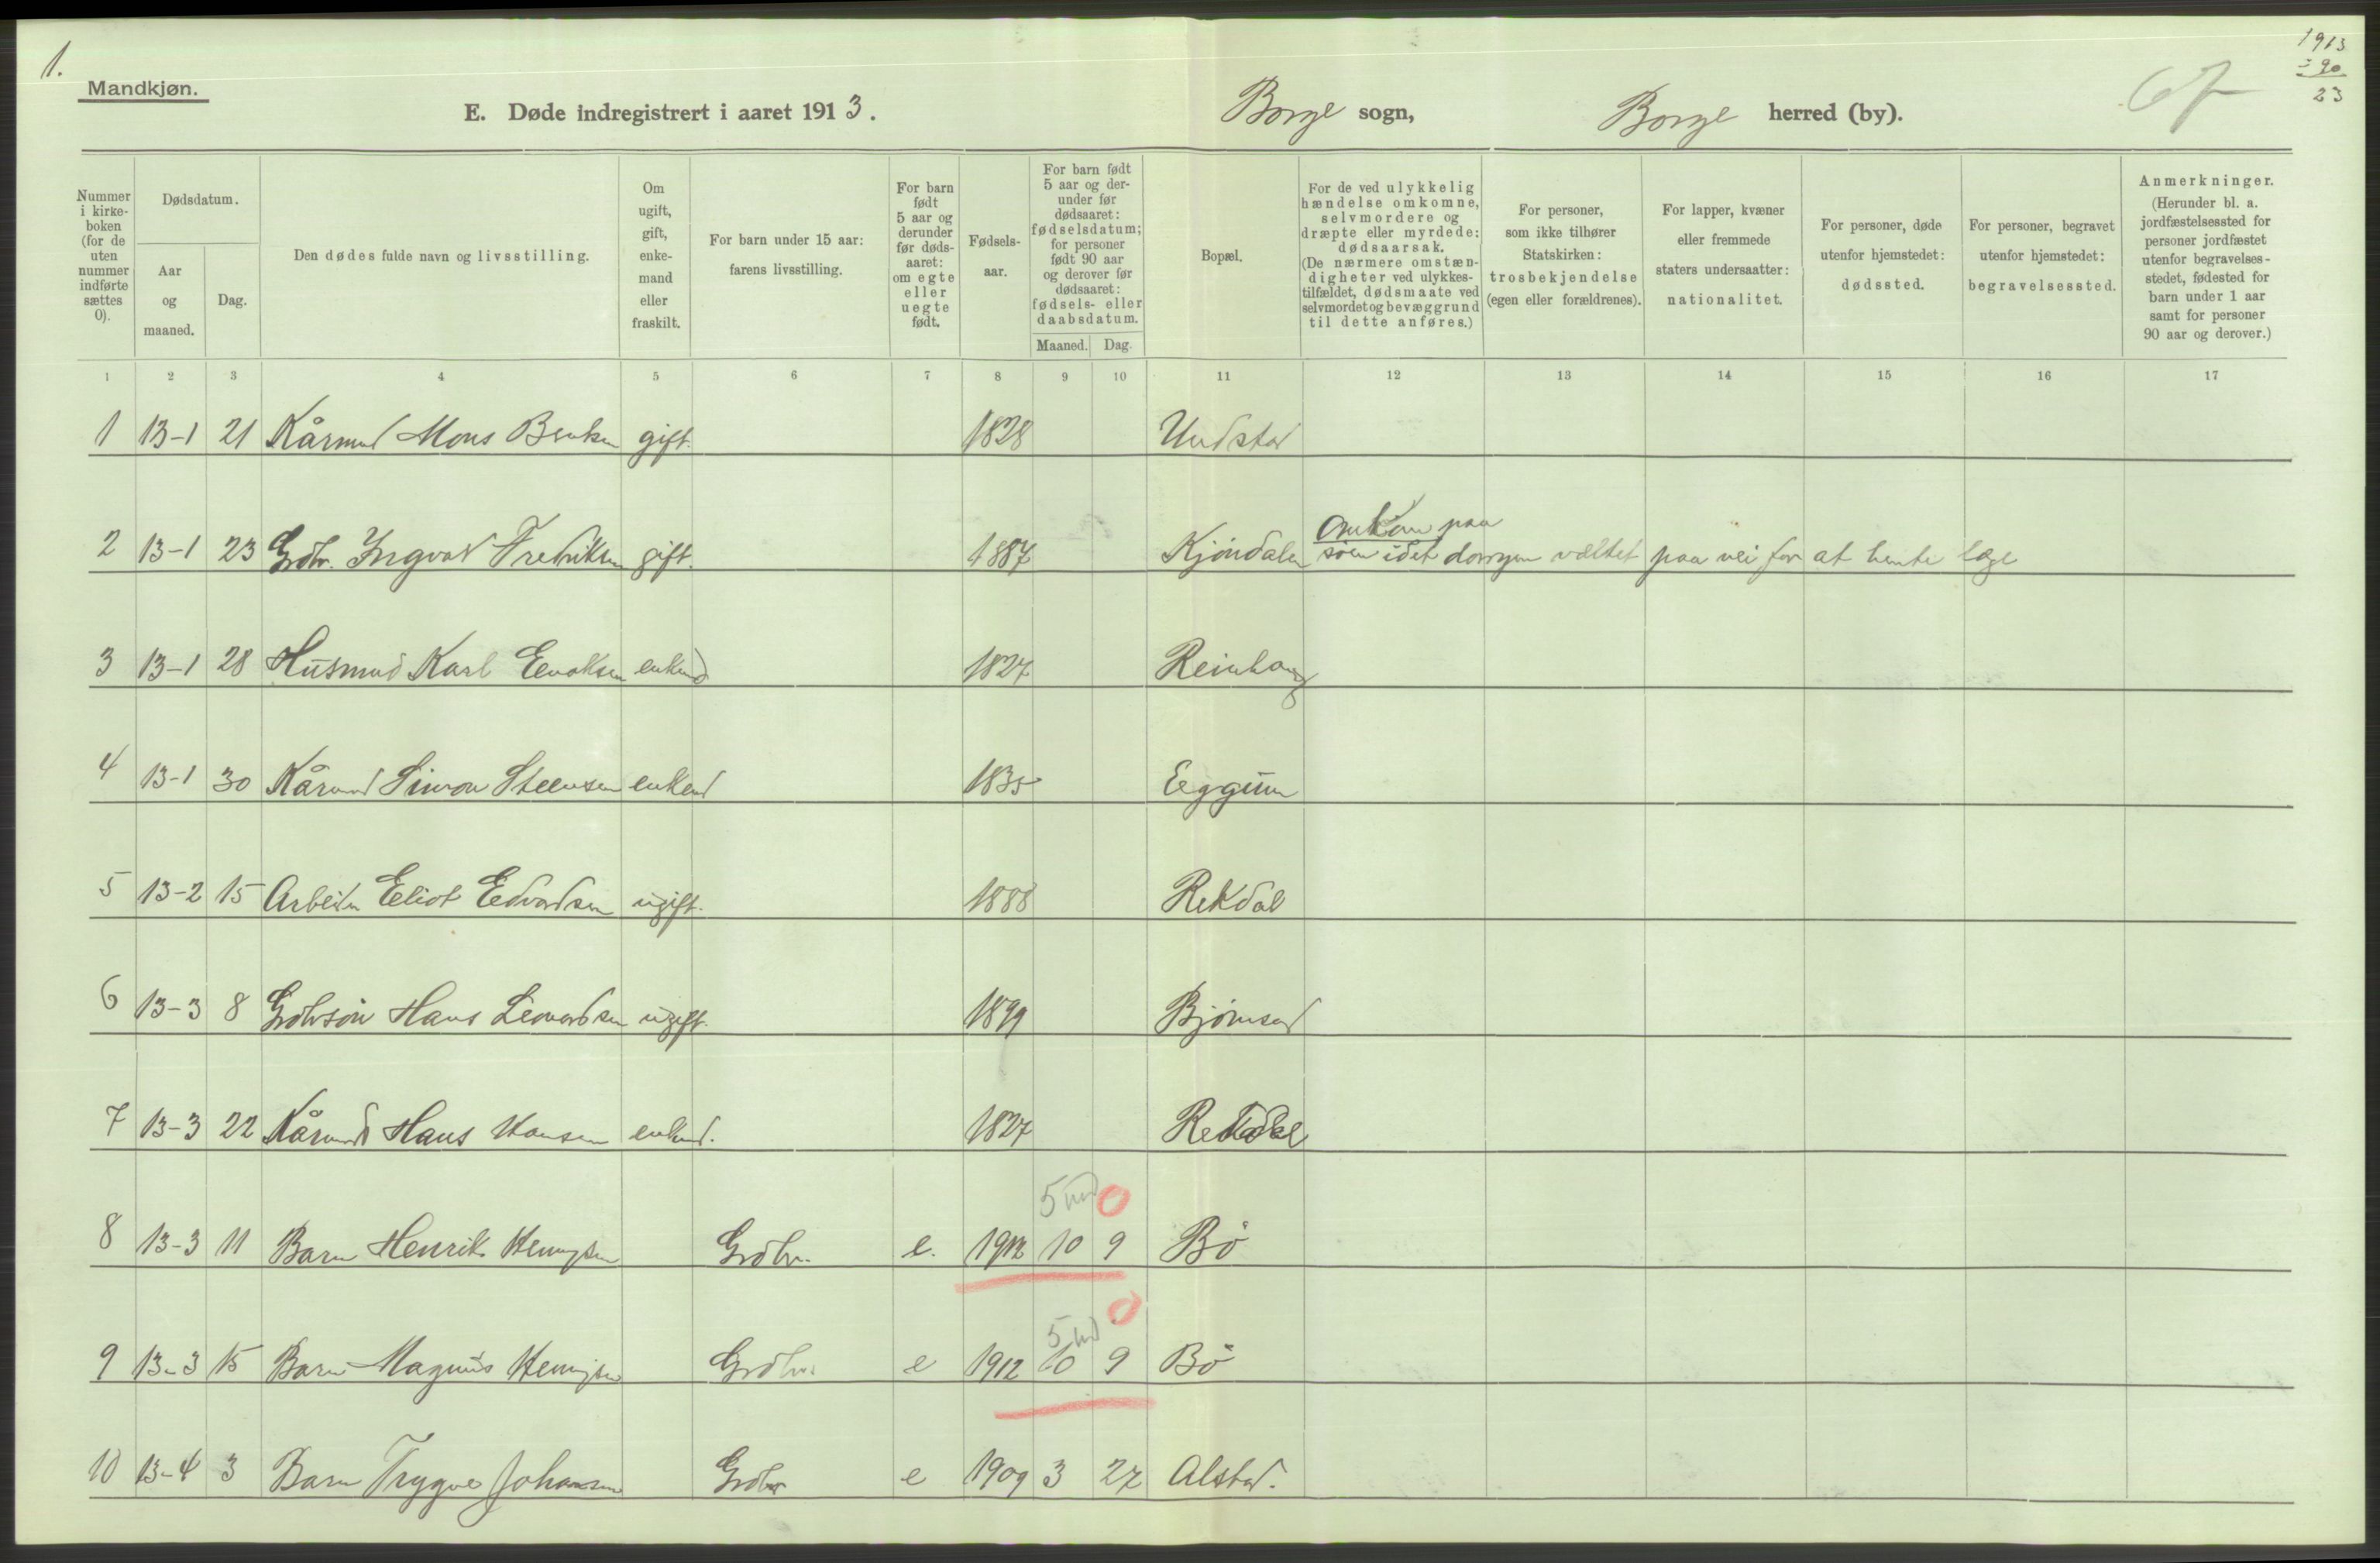 1.
1913
÷ 90
23
Mandkjøn.
E. Døde indregistrert i aaret 1913.
Borge sogn,
Borge herred (by).
67
Nummer i kirke-boken (for de uten nummer indførte sættes 0).
Dødsdatum.
Aar og maaned.
Dag.
Den dødes fulde navn og livsstilling.
Om ugift, gift, enke-mand eller fraskilt.
For barn under 15 aar: farens livsstilling.
For barn født 5 aar og derunder før døds-aaret: om egte eller uegte født.
Fødsels-aar.
For barn født 5 aar og der-under før dødsaaret: fødselsdatum; for personer født 90 aar og derover før dødsaaret: fødsels- eller daabsdatum.
Maaned.
Dag.
Bopæl.
For de ved ulykkelig hændelse omkomne, selvmordere og dræpte eller myrdede: dødsaarsak. (De nærmere omstæn-digheter ved ulykkes-tilfældet, dødsmaate ved selvmordet og bevæggrund til dette anføres.)
For personer, som ikke tilhører Statskirken: trosbekjendelse (egen eller forældrenes).
For lapper, kvæner eller fremmede staters undersaatter: nationalitet.
For personer, døde utenfor hjemstedet: dødssted.
For personer, begravet utenfor hjemstedet: begravelsessted.
Anmerkninger. (Herunder bl. a. jordfæstelsessted for personer jordfæstet utenfor begravelses-stedet, fødested for barn under 1 aar samt for personer 90 aar og derover.)
1 2 3 4 5 6 7 8 9 10 11 12 13 14 15 16 17
1 13-1 21 Kårmand Mons Bentsen gift. 1828 Undstad
Omkom paa
2 13-1 23 Grdbr. Ingvart Fredriksen gift. 1887 Kjøndalen søen idet dorryen væltet paa vei for at hente læge
3 13-1 28 Husmnd Karl Enoksen enkmd 1827 Reinhaug
4 13-1 30 Kårmand Simon Steensen enkem 1835 Eggum
5 13-2 15 Arbeider Eliot Edvardsen ugift. 1888 Rekdal
6 13-3 8 Grdbrsøn Hans Leonardsen ugift. 1899 Bjørnsand
7 13-3 22 Kårmand Hans Hansen enkmd. 1827 Rekdal
5 md 0
8 13-3 11 Barn Henrik Hemingsen Grdbr. e. 1912 10 9 Bø
5 md 0
9 13-3 15 Barn Magnus Hemingsen Grdbr. e 1912 10 9 Bø
10 13-4 3 Barn Trygve Johansen Grdbr e 1909 3 27 Alstad.